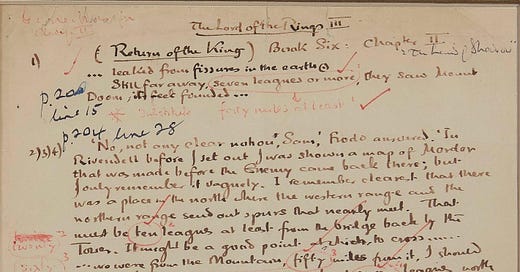 The Lord of the Rings III
(Return of the King) Book Six: Chapter II
"The Land of Shadow"
1)
... leaked from fissures in the earth.
Still far away, seven leagues or more, they saw Mount
Doom, its feet founded...
p. 200
line 15
* Substitute 'forty miles at least'
p. 204 line 28
2) 3) 4) 'No, not any clear notion, Sam,' Frodo answered. 'In
Rivendell before I set out I was shown a map of Mordor
that was made before the Enemy came back there; but
I only remember it vaguely. I remember clearest that there
was a place in the north where the western range and the
northern range send out spurs that nearly meet. That
must be ten leagues at least from the bridge back by the
Tower. It might be a good point at which to cross.....
twenty
.... we were from the Mountain, fifty miles from it, I should
leagues north